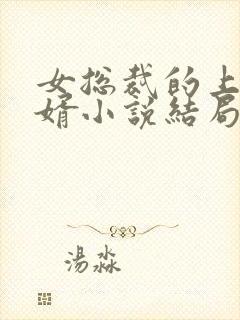 女总裁的上
婿小说结局
汤淼